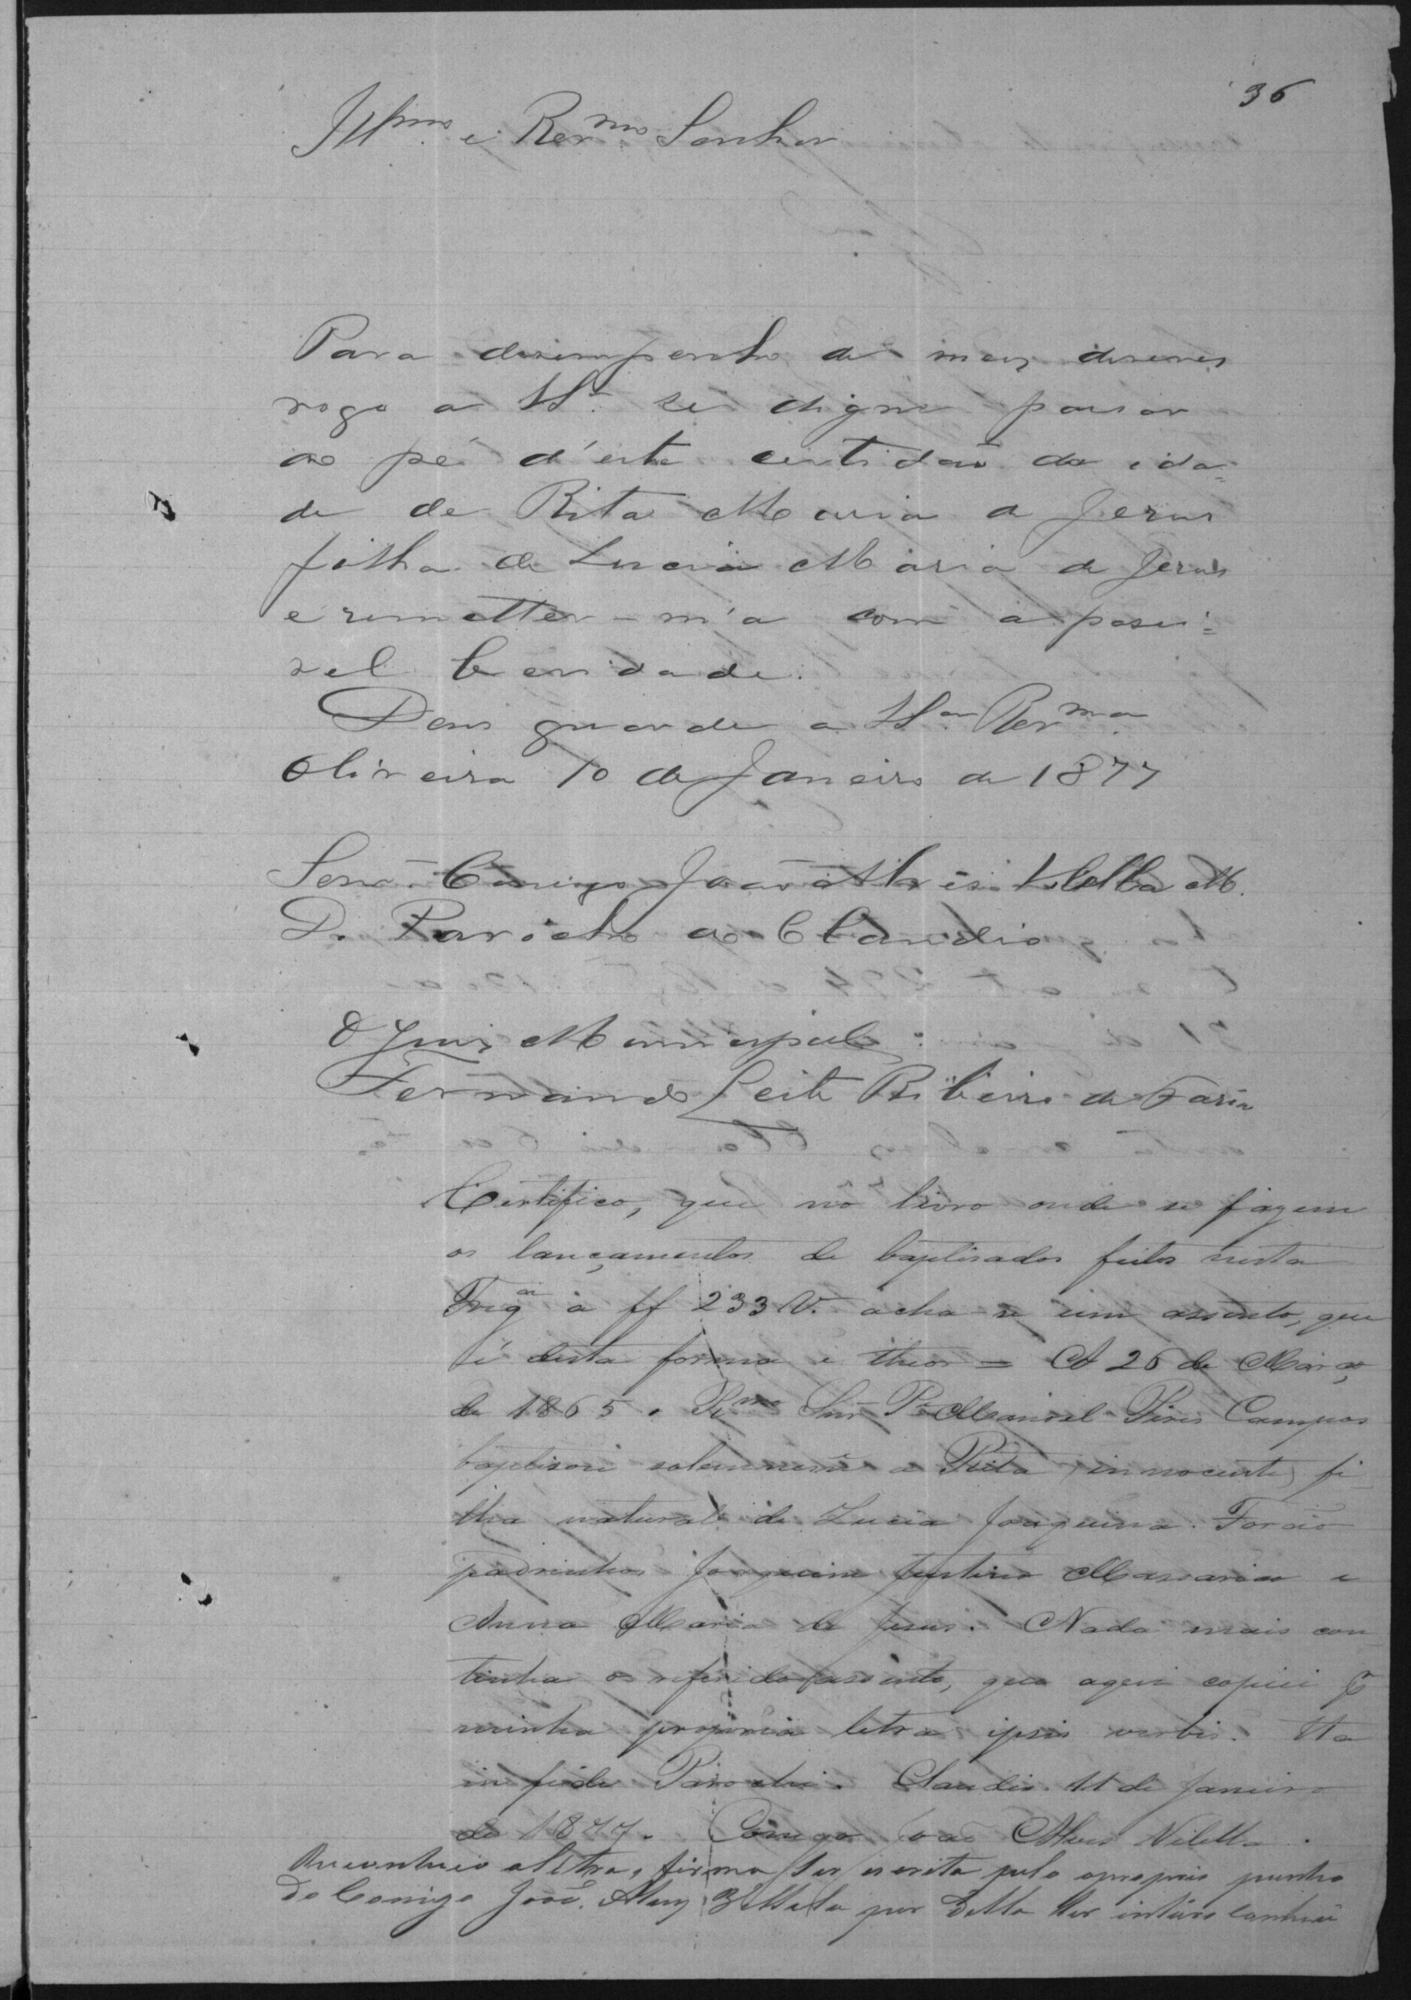 36
Illmo. e Revmo. Senhor
Para desempenho de meus deveres
rogo a VSa. se digne passar
ao pé d'este certidaõ da ida=
de de Rita Maria de Jesus
filha de Lucia Maria de Jesus
e remetter-m'a com a possi=
vel brevidade.
Deus guarde a VSa. Revma.
Oliveira 10 de Janeiro de 1877
Senr. Conego João Alves Vilella M.
D. Parocho do Claudio
O Juiz Municipal
Fernando Leite Ribeiro de Faria
Certifico, que no livro onde se fazem
os lançamentos de baptisados feitos nesta
Fregª a ff 233 V. acha-se um assento, que
é desta forma e theor = A 26 de Março
de 1865 o Rmo Snr Pe Manoel Pires Campos
baptisou solemnemte a Rita innocente, fi-
lha natural de Lucia Joaquina. Forão
padrinhos Joaquim Justino e
Anna Maria de Jesus. Nada mais con-
tinha o referido assento, que aqui copiei
minha propria letra ipsis verbis. Ita
in fide Parochi. Claudio 11 de Janeiro
de 1877. Conego João Alves Vilella.
Reconheco a letra, e firma ser escrita pelo proprio punho
do Conigo João Alves Villela por Della ter inteiro conheci